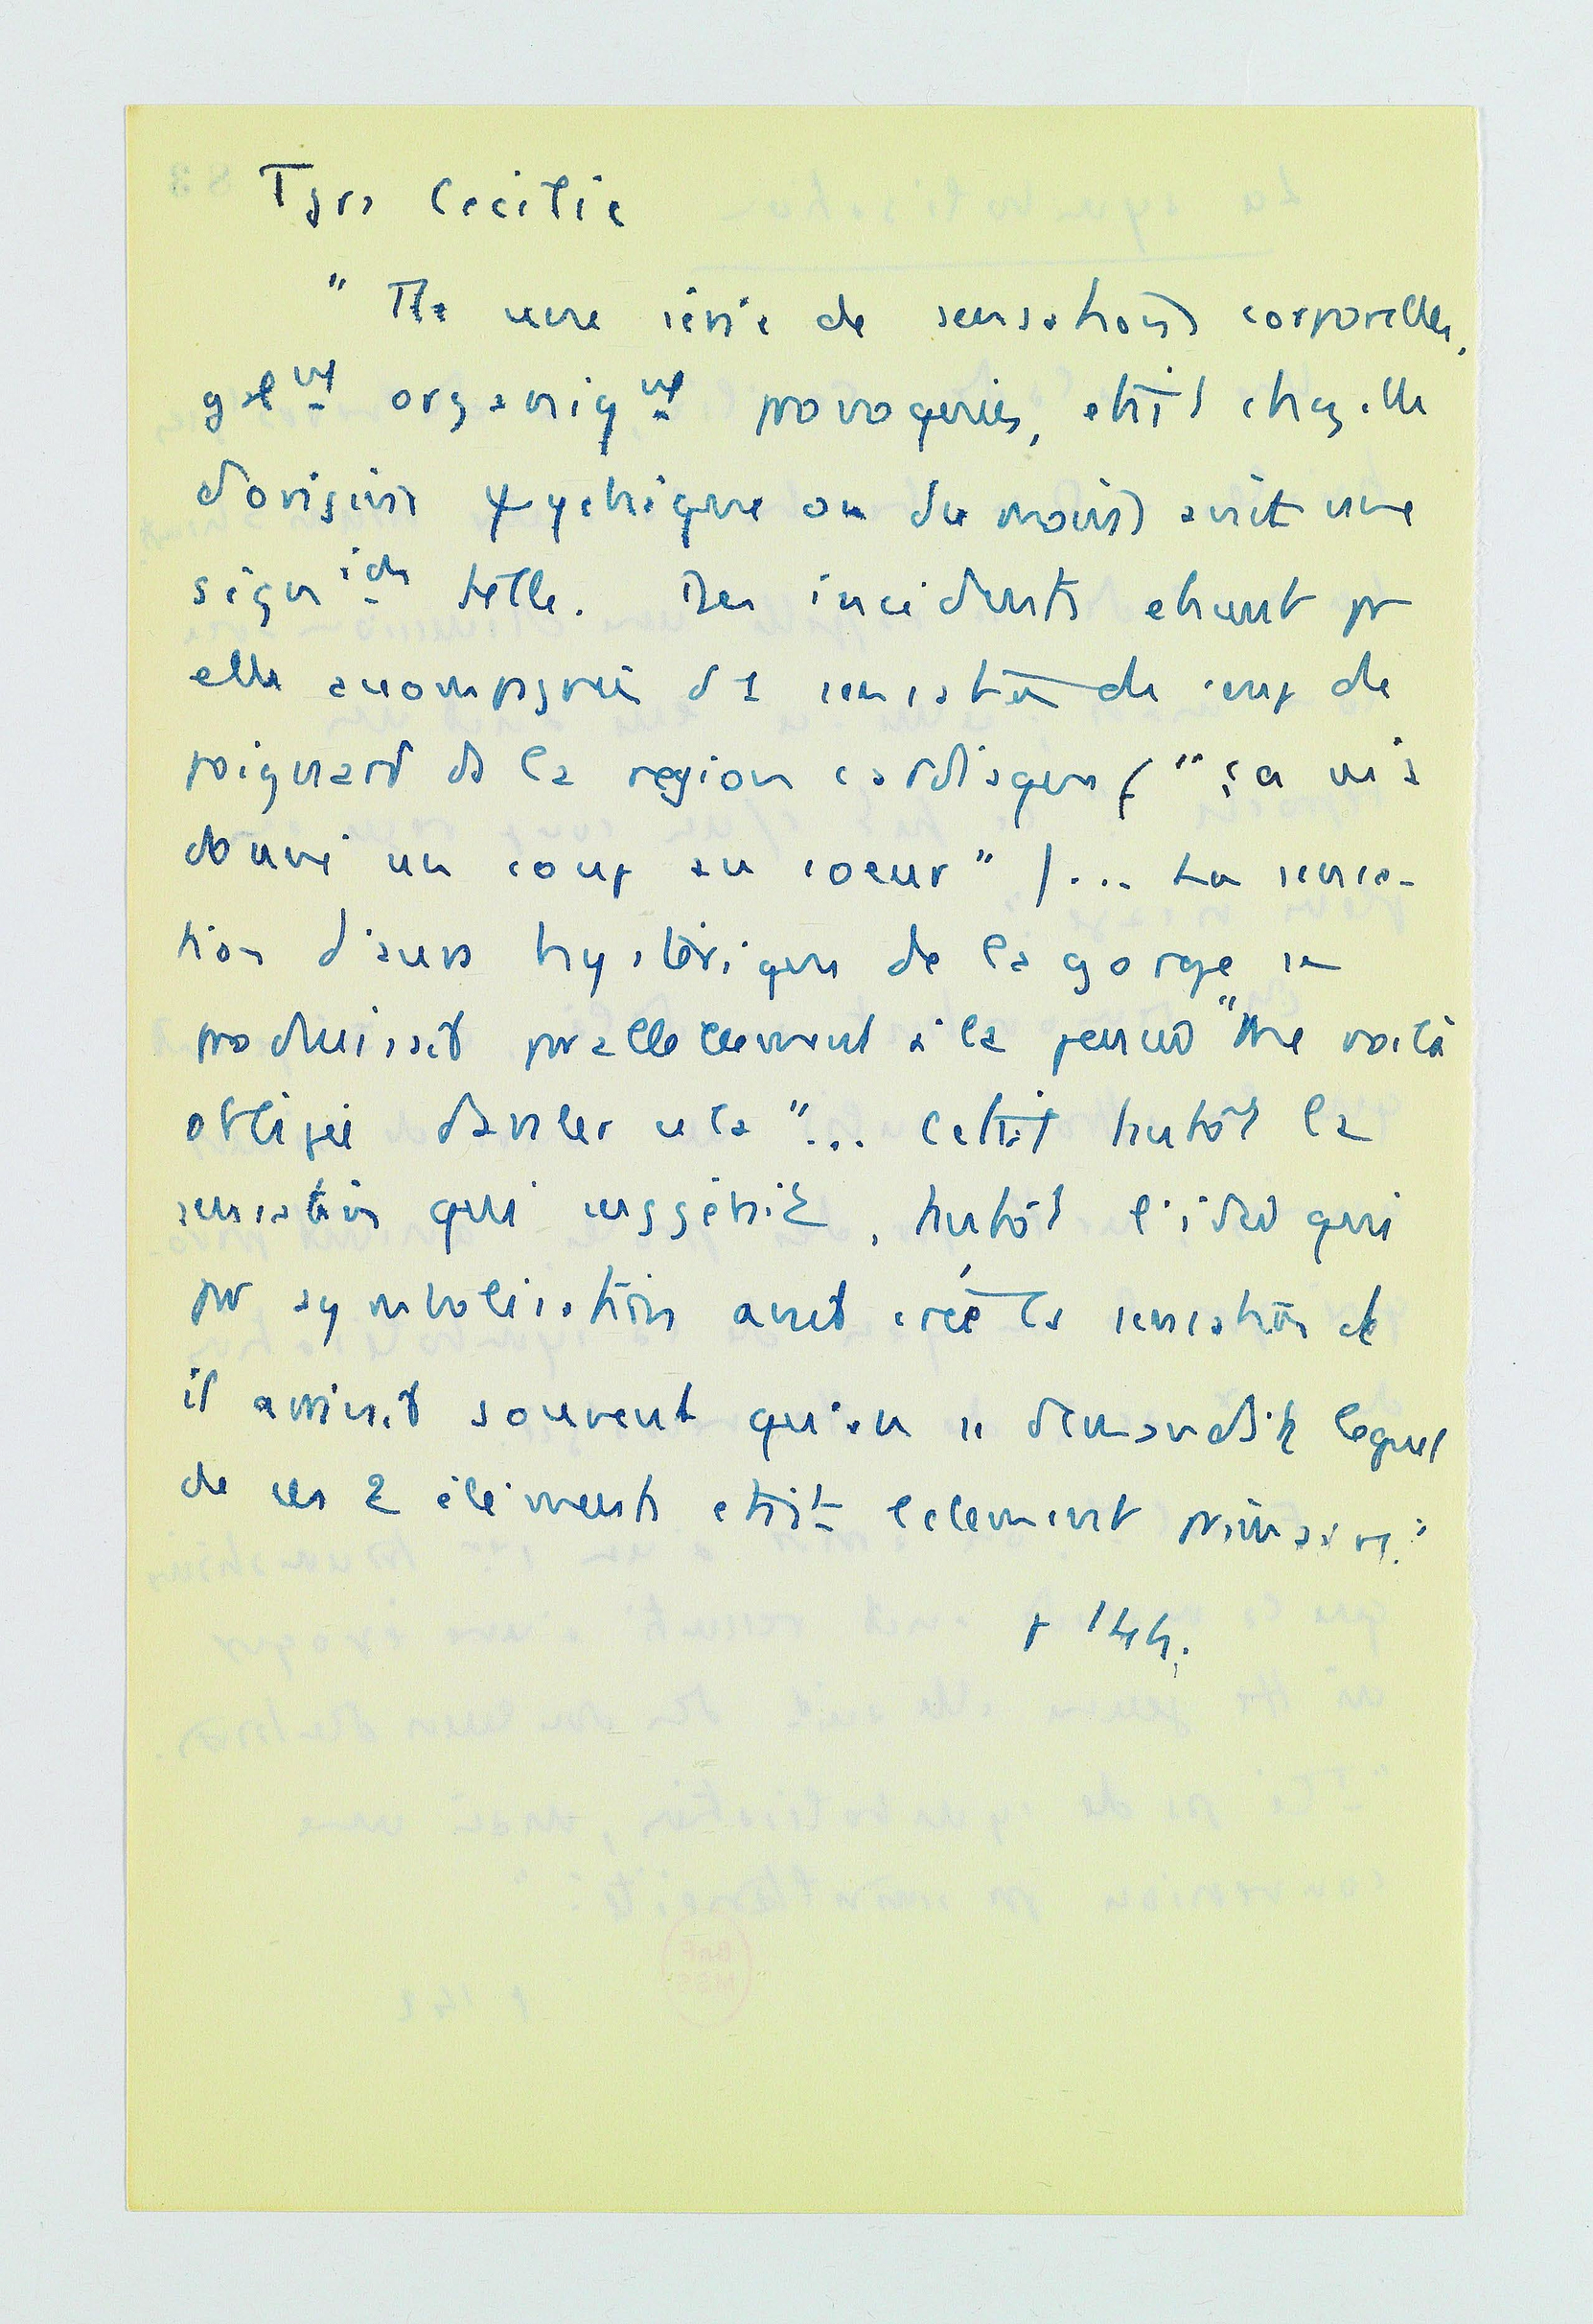 Tjrs Cecilie
" Tte une série de sensations corporelles,
galmt organiqmt provoquées, était chez elle
d'origine psychique ou du moins avait une
signion telle. Des incidents étaient pr
elle accompagnés d'1 sensation de coup de
poignard ds la région cardiaque ( " ça m'a
donné un coup au coeur " ) ... La sensa-
tion d'aura hystérique de la gorge se
produisait parallèlement à la pensée "Me voilà
obligée d'avaler cela "... C'était tantôt la
sensation qui suggérait, tantôt l'idée qui
par symbolisation avait créé la sensation et
il arrivait souvent qu'on se demandait lequel
de ces 2 éléments était l'élément primaire."
p 144.